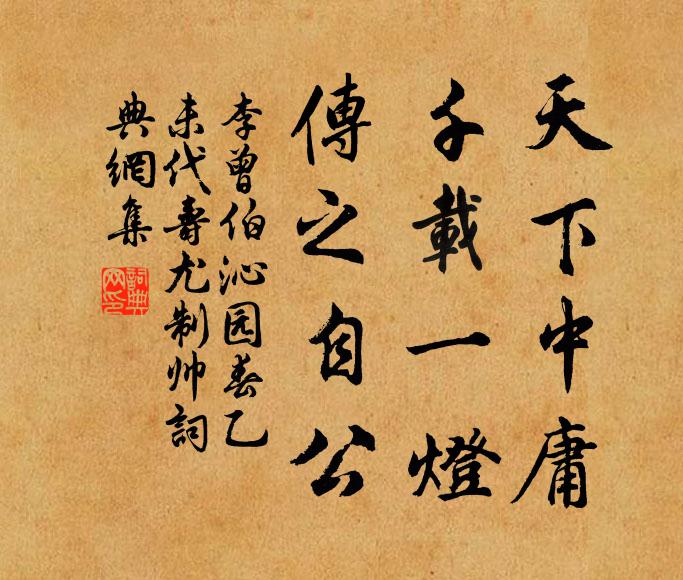 天下中庸
千載一燈
傳之自公
李曾伯沁园春乙
未代壽尤制帅詞
典網集
詞典网印